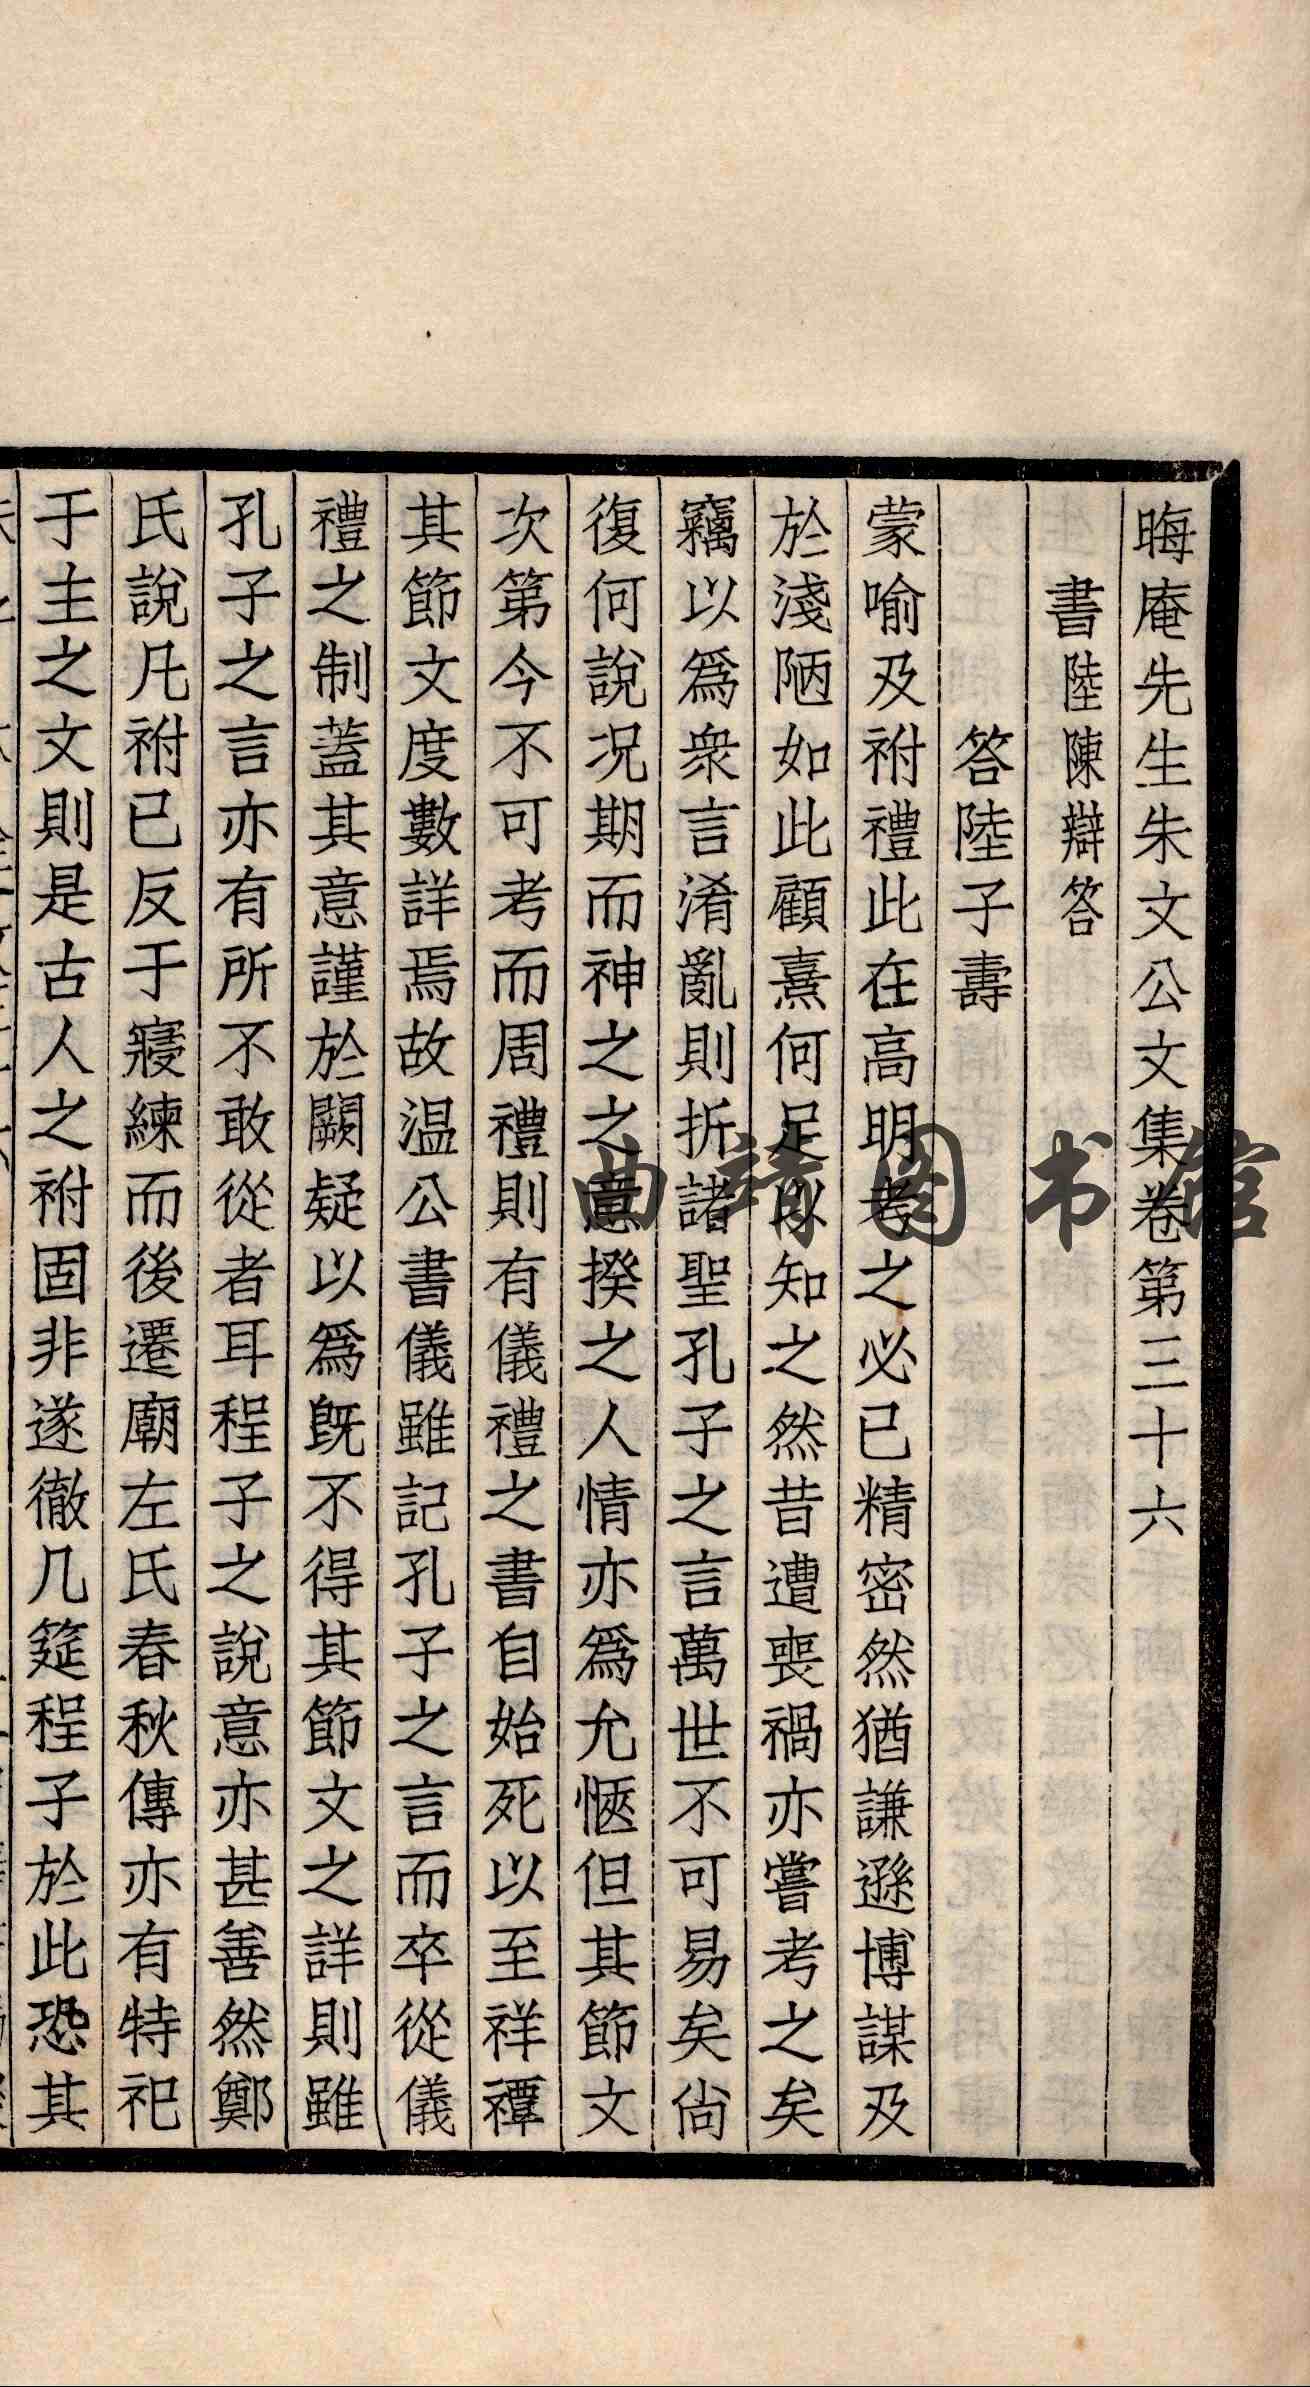 晦庵先生朱文公文集卷第三十六
書陸陳辯答
答陸子壽
蒙喻及祔禮此在高明考之必已精密然猶謙遜博謀及
於淺陋如此顧熹何足以知之然昔遭喪禍亦嘗考之矣
竊以爲衆言淆亂則折諸聖孔子之言萬世不可易矣尙
復何說况期而神之之意揆之人情亦爲允愜但其節文
次第今不可考而周禮則有儀禮之書自始死以至祥禫
其節文度數詳焉故温公書儀雖記孔子之言而卒從儀
禮之制蓋其意謹於闕疑以爲旣不得其節文之詳則雖
孔子之言亦有所不敢從者耳程子之說意亦甚善然鄭
氏說凡祔已反于寢練而後遷廟左氏春秋傳亦有特祀
于主之文則是古人之祔固非遂徹几筵程子於此恐其
曲靖图书馆